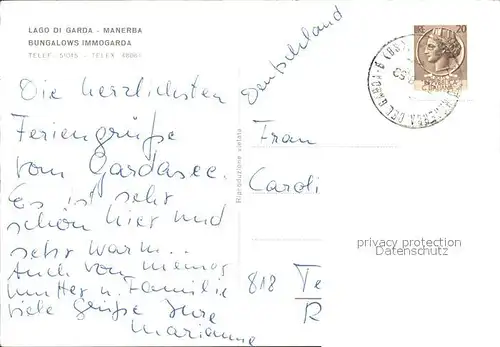 LAGO DI GARDA - MANERBA
BUNGALOWS IMMOGARDA
TELEF. TELEX 48064
Die herzlichsten
Feriengrüße
vom Gardasee.
Es ist sehr
schön hier und
sehr warm..
Auch von meiner
Mutter u. Familie
viele Grüße Ihre
Marianne
Riproduzione vietata
Deutschland
20
DEL GARDA
Frau
Caroli
818 Te
R
privacy protection
Datenschutz